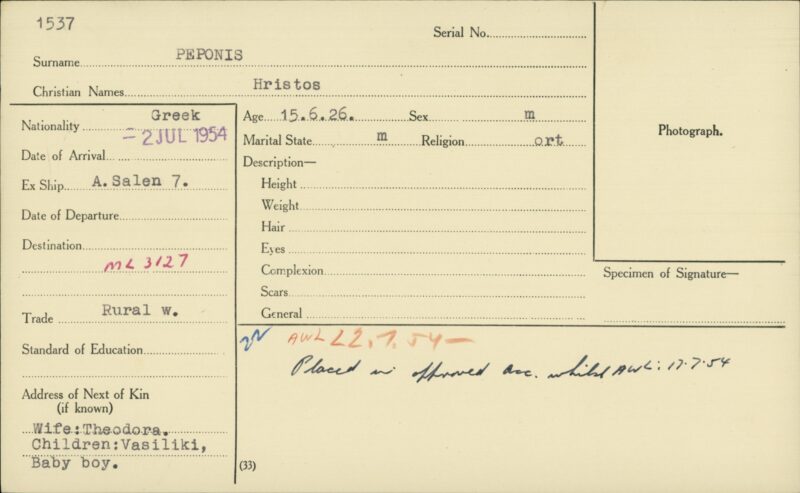 1537
Serial No.
Surname PEPONIS
Christian Names Hristos
Nationality Greek
- 2 JUL 1954
Date of Arrival
Ex Ship A.Salen 7.
Date of Departure
Destination
ML 3127
Trade Rural w.
Standard of Education
Address of Next of Kin
(if known)
Wife:Theodora.
Children:Vasiliki,
Baby boy.
Age 15.6.26. Sex m
Marital State m Religion ort
Description—
Height
Weight
Hair
Eyes
Complexion
Scars
General
AWL 22.7.54 —
Placed in approved acc. whilst AWL: 17.7.54
(33)
Photograph.
Specimen of Signature—